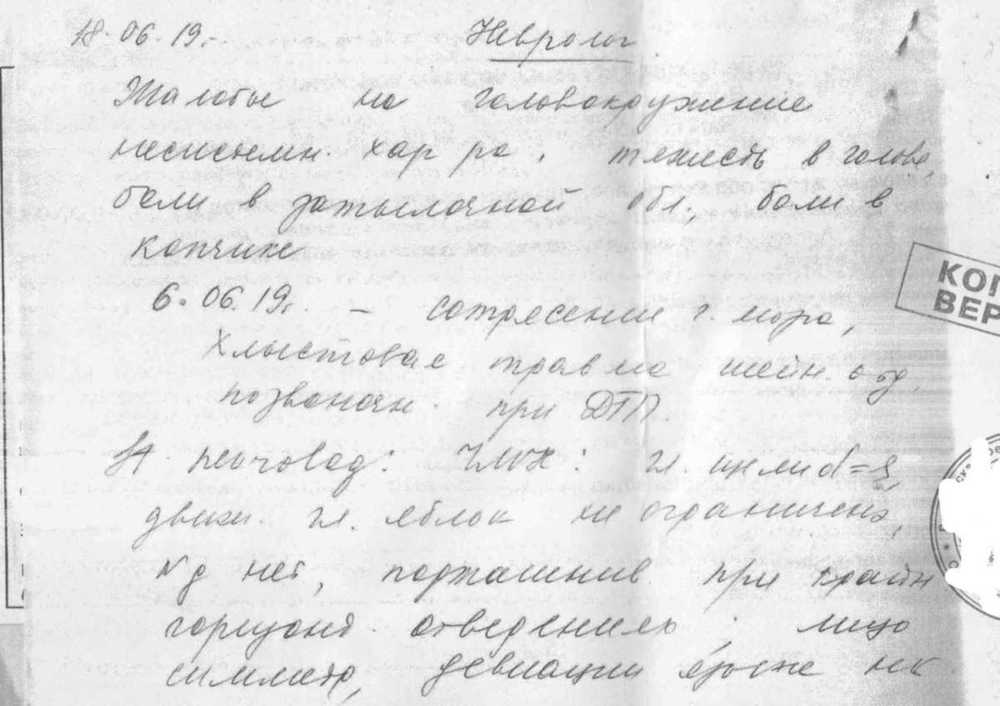 18.06.19г. Невролог
Жалобы на головокружение
несистемн. хар-ра, тяжесть в голове,
боли в затылочной обл., боли в
копчике
6.06.19г. – сотрясение г. мозга,
Хлыстовая травма шейн. отд.
позвоночн. при ДТП.
ЧМН: гл. щели d=s,
движ. гл. яблок не ограничены,
Ng нет, подташнив. при крайн
горизонт. отведениях, лицо
симметр, девиации языка не
КОП
ВЕР